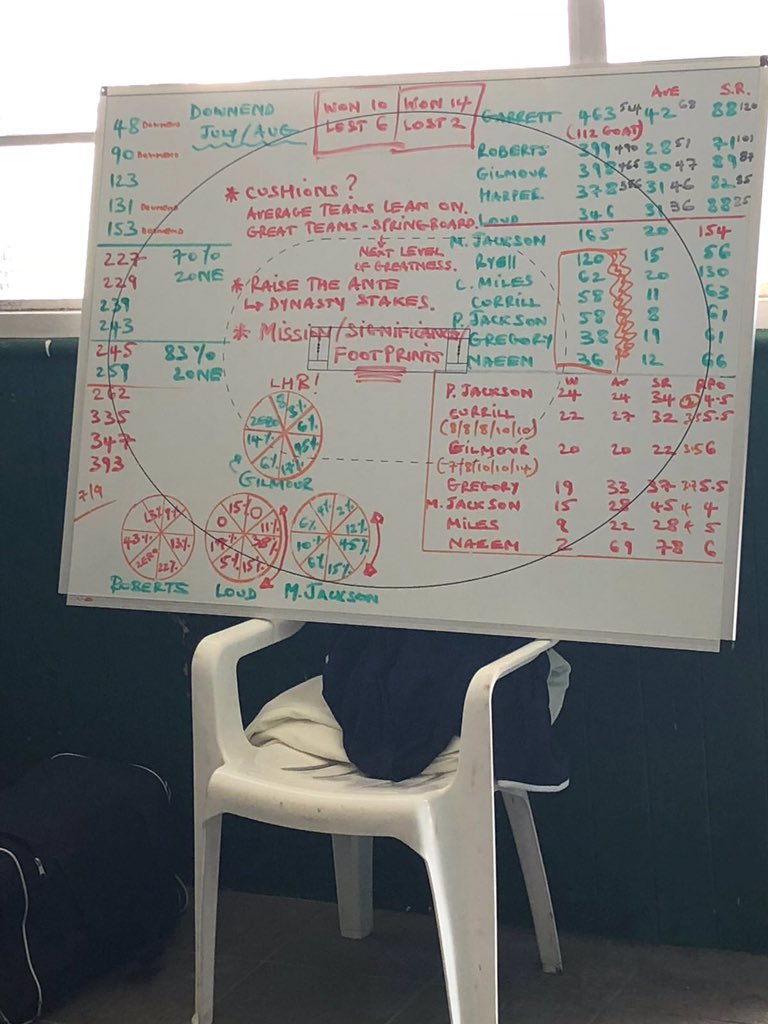 48 DOWNEND
90 DOWNEND
123
131 DOWNEND
153 DOWNEND
227 70%
229 ZONE
239
243
245 83%
259 ZONE
262
335
347
393
7/9
DOWNEND
JULY/AUG
WON 10 WON 14
LOST 6 LOST 2
* CUSHIONS?
AVERAGE TEAMS LEAN ON.
GREAT TEAMS - SPRINGBOARD
NEXT LEVEL
OF GREATNESS.
* RAISE THE ANTE
↳ DYNASTY STAKES.
* MISSION/SIGNIFICANCE/
FOOTPRINTS
AVE S.R.
GARRETT 463 544 42 68 88 120
(112 GOAT)
ROBERTS 399 490 28 51 71 101
GILMOUR 398 465 30 47 89 87
HARPER 378 356 31 46 82 85
LOUD 346 31 36 88 85
M. JACKSON 165 20 154
RYELL 120 15 56
C. MILES 62 20 130
CURRILL 58 11 63
P. JACKSON 58 8 61
GREGORY 38 19 61
NAEEM 36 12 66
W AV SR RPO
P. JACKSON 24 24 34 4.5
CURRILL 22 27 32 5.5
(8/8/8/10/10)
GILMOUR 20 20 22 6
(7/8/10/10/14)
GREGORY 19 33 37 5.5
M. JACKSON 15 28 45 4
MILES 9 22 28 5
NAEEM 2 69 78 6
LHB!
8 3%
ZERO 6%
14% 45%
6% 17%
GILMOUR
13% 9%
43% 13%
ZERO 22%
ROBERTS
15% 0
0 11%
5% 15%
LOUD
4% 2%
6% 12%
10% 45%
6% 15%
M. JACKSON